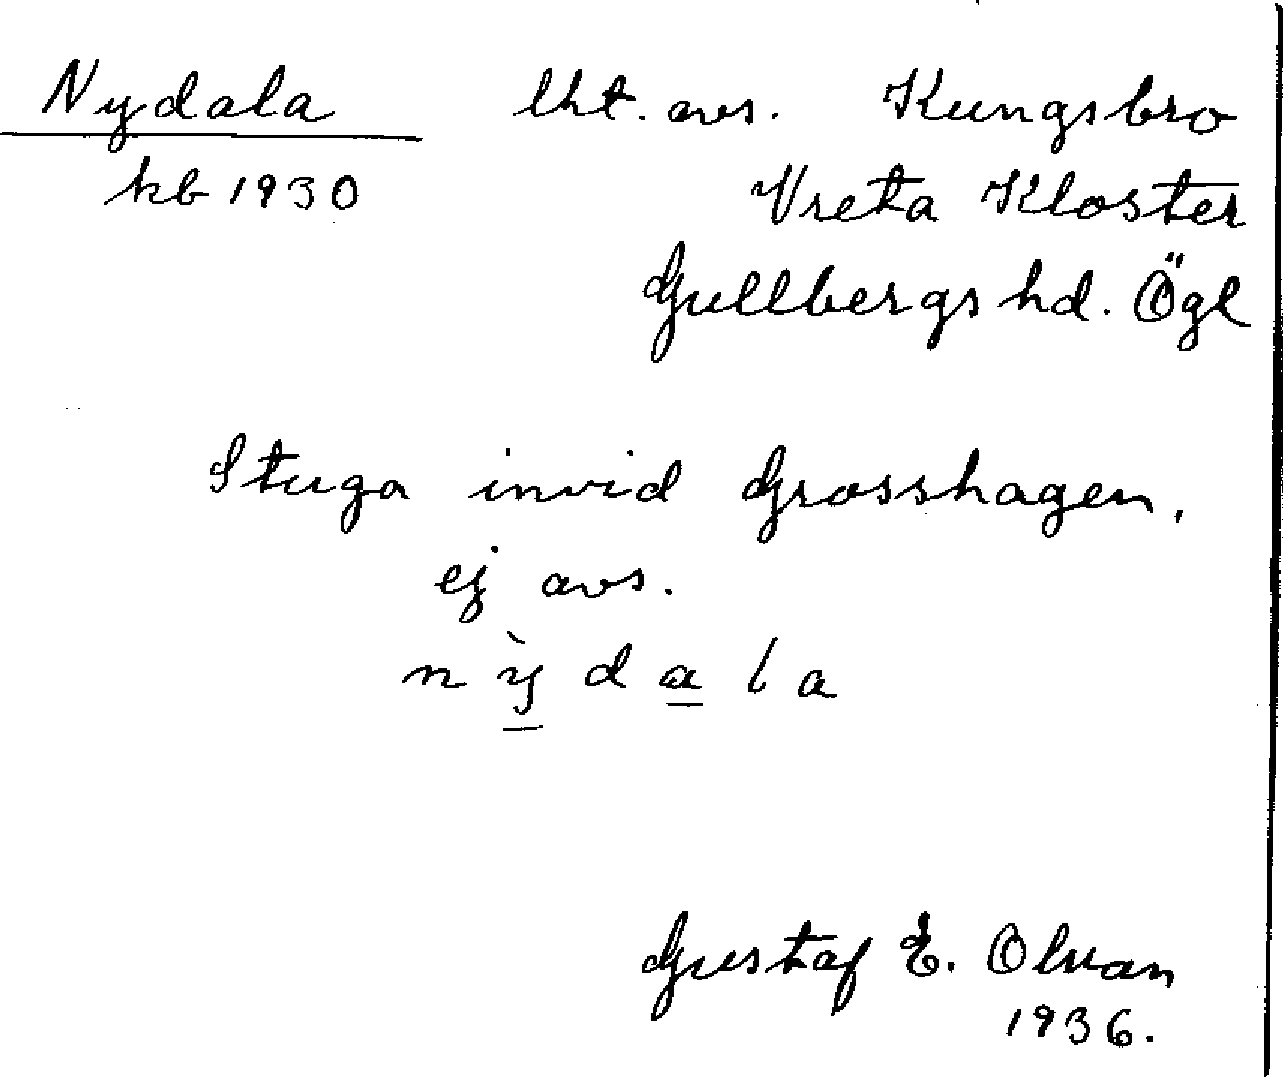 Nydala lht. avs. Kungsbro
kb 1930 Vreta Kloster
Gullbergs hd. Ögl
Stuga invid Grosshagen,
ej avs.
n ỳ d a l a
Gustaf E. Olvan
1936.